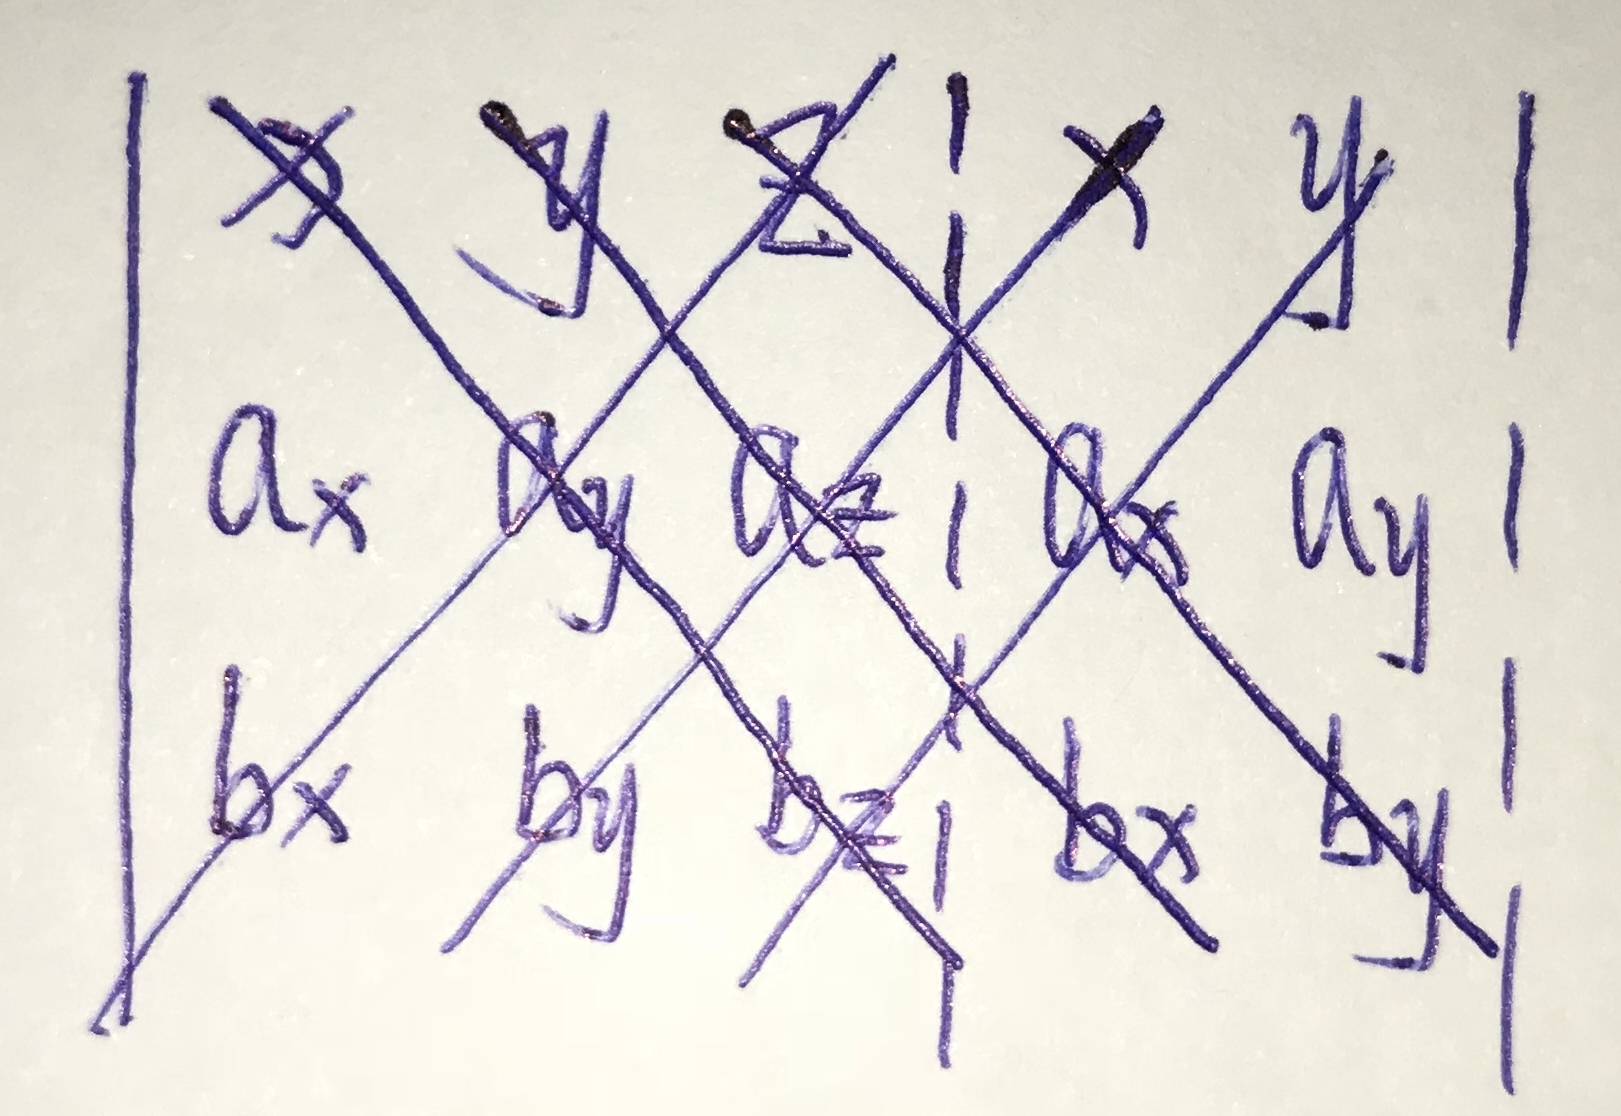 x y z x y
ax ay az ax ay
bx by bz bx by